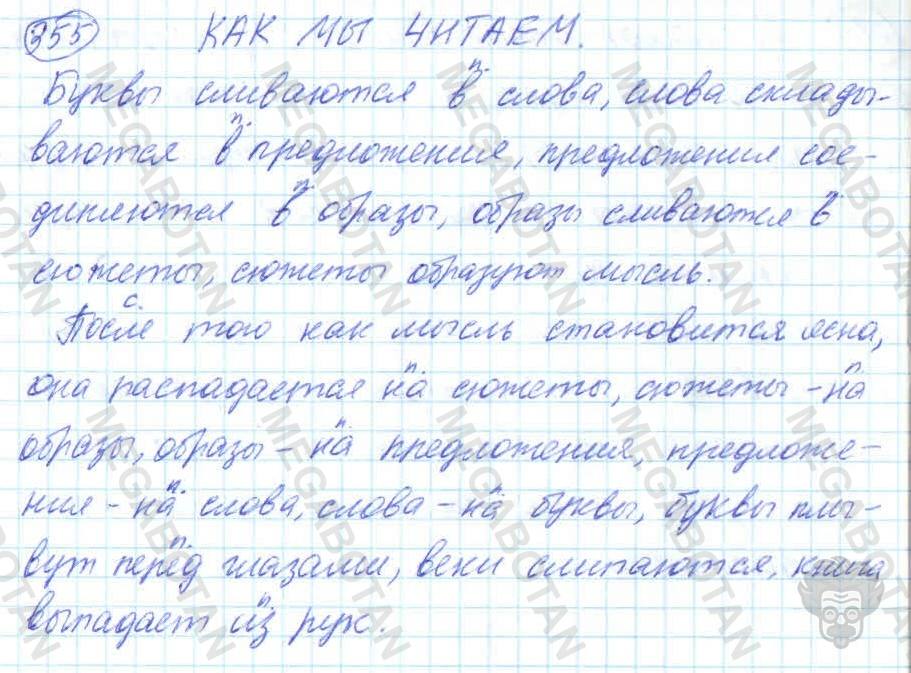 355 КАК МЫ ЧИТАЕМ.
Буквы сливаются в слова, слова склады-
ваются в предложения, предложения сое-
диняются в образы, образы сливаются в
сюжеты, сюжеты образуют мысль.
После того как мысль становится ясна,
она распадается на сюжеты, сюжеты - на
образы, образы - на предложения, предложе-
ния - на слова, слова - на буквы, буквы плы-
вут перед глазами, веки слипаются, книга
выпадает из рук.
MEGABOTAN